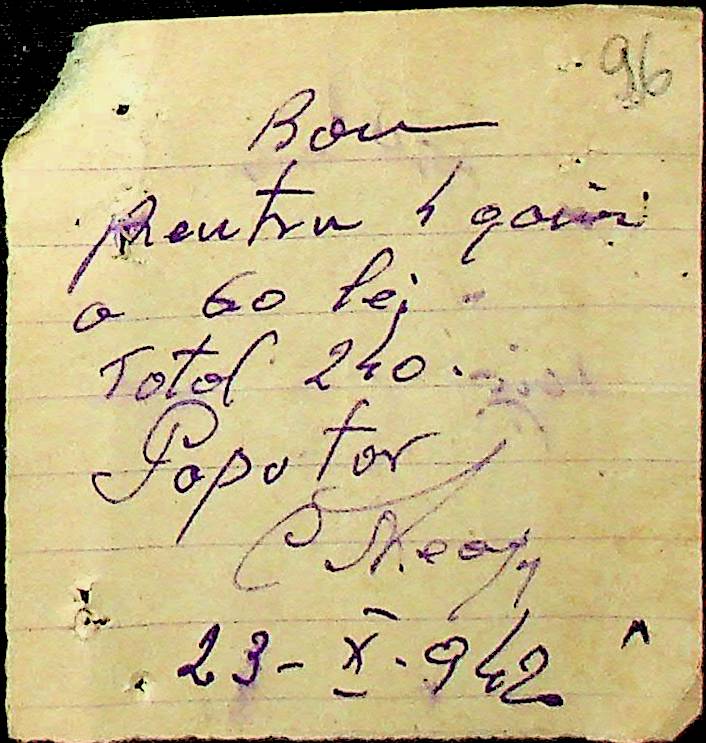 96
Bon
pentru 4 găini
a 60 lei
Total 240.
Popotar
C Neagu
23-X-942